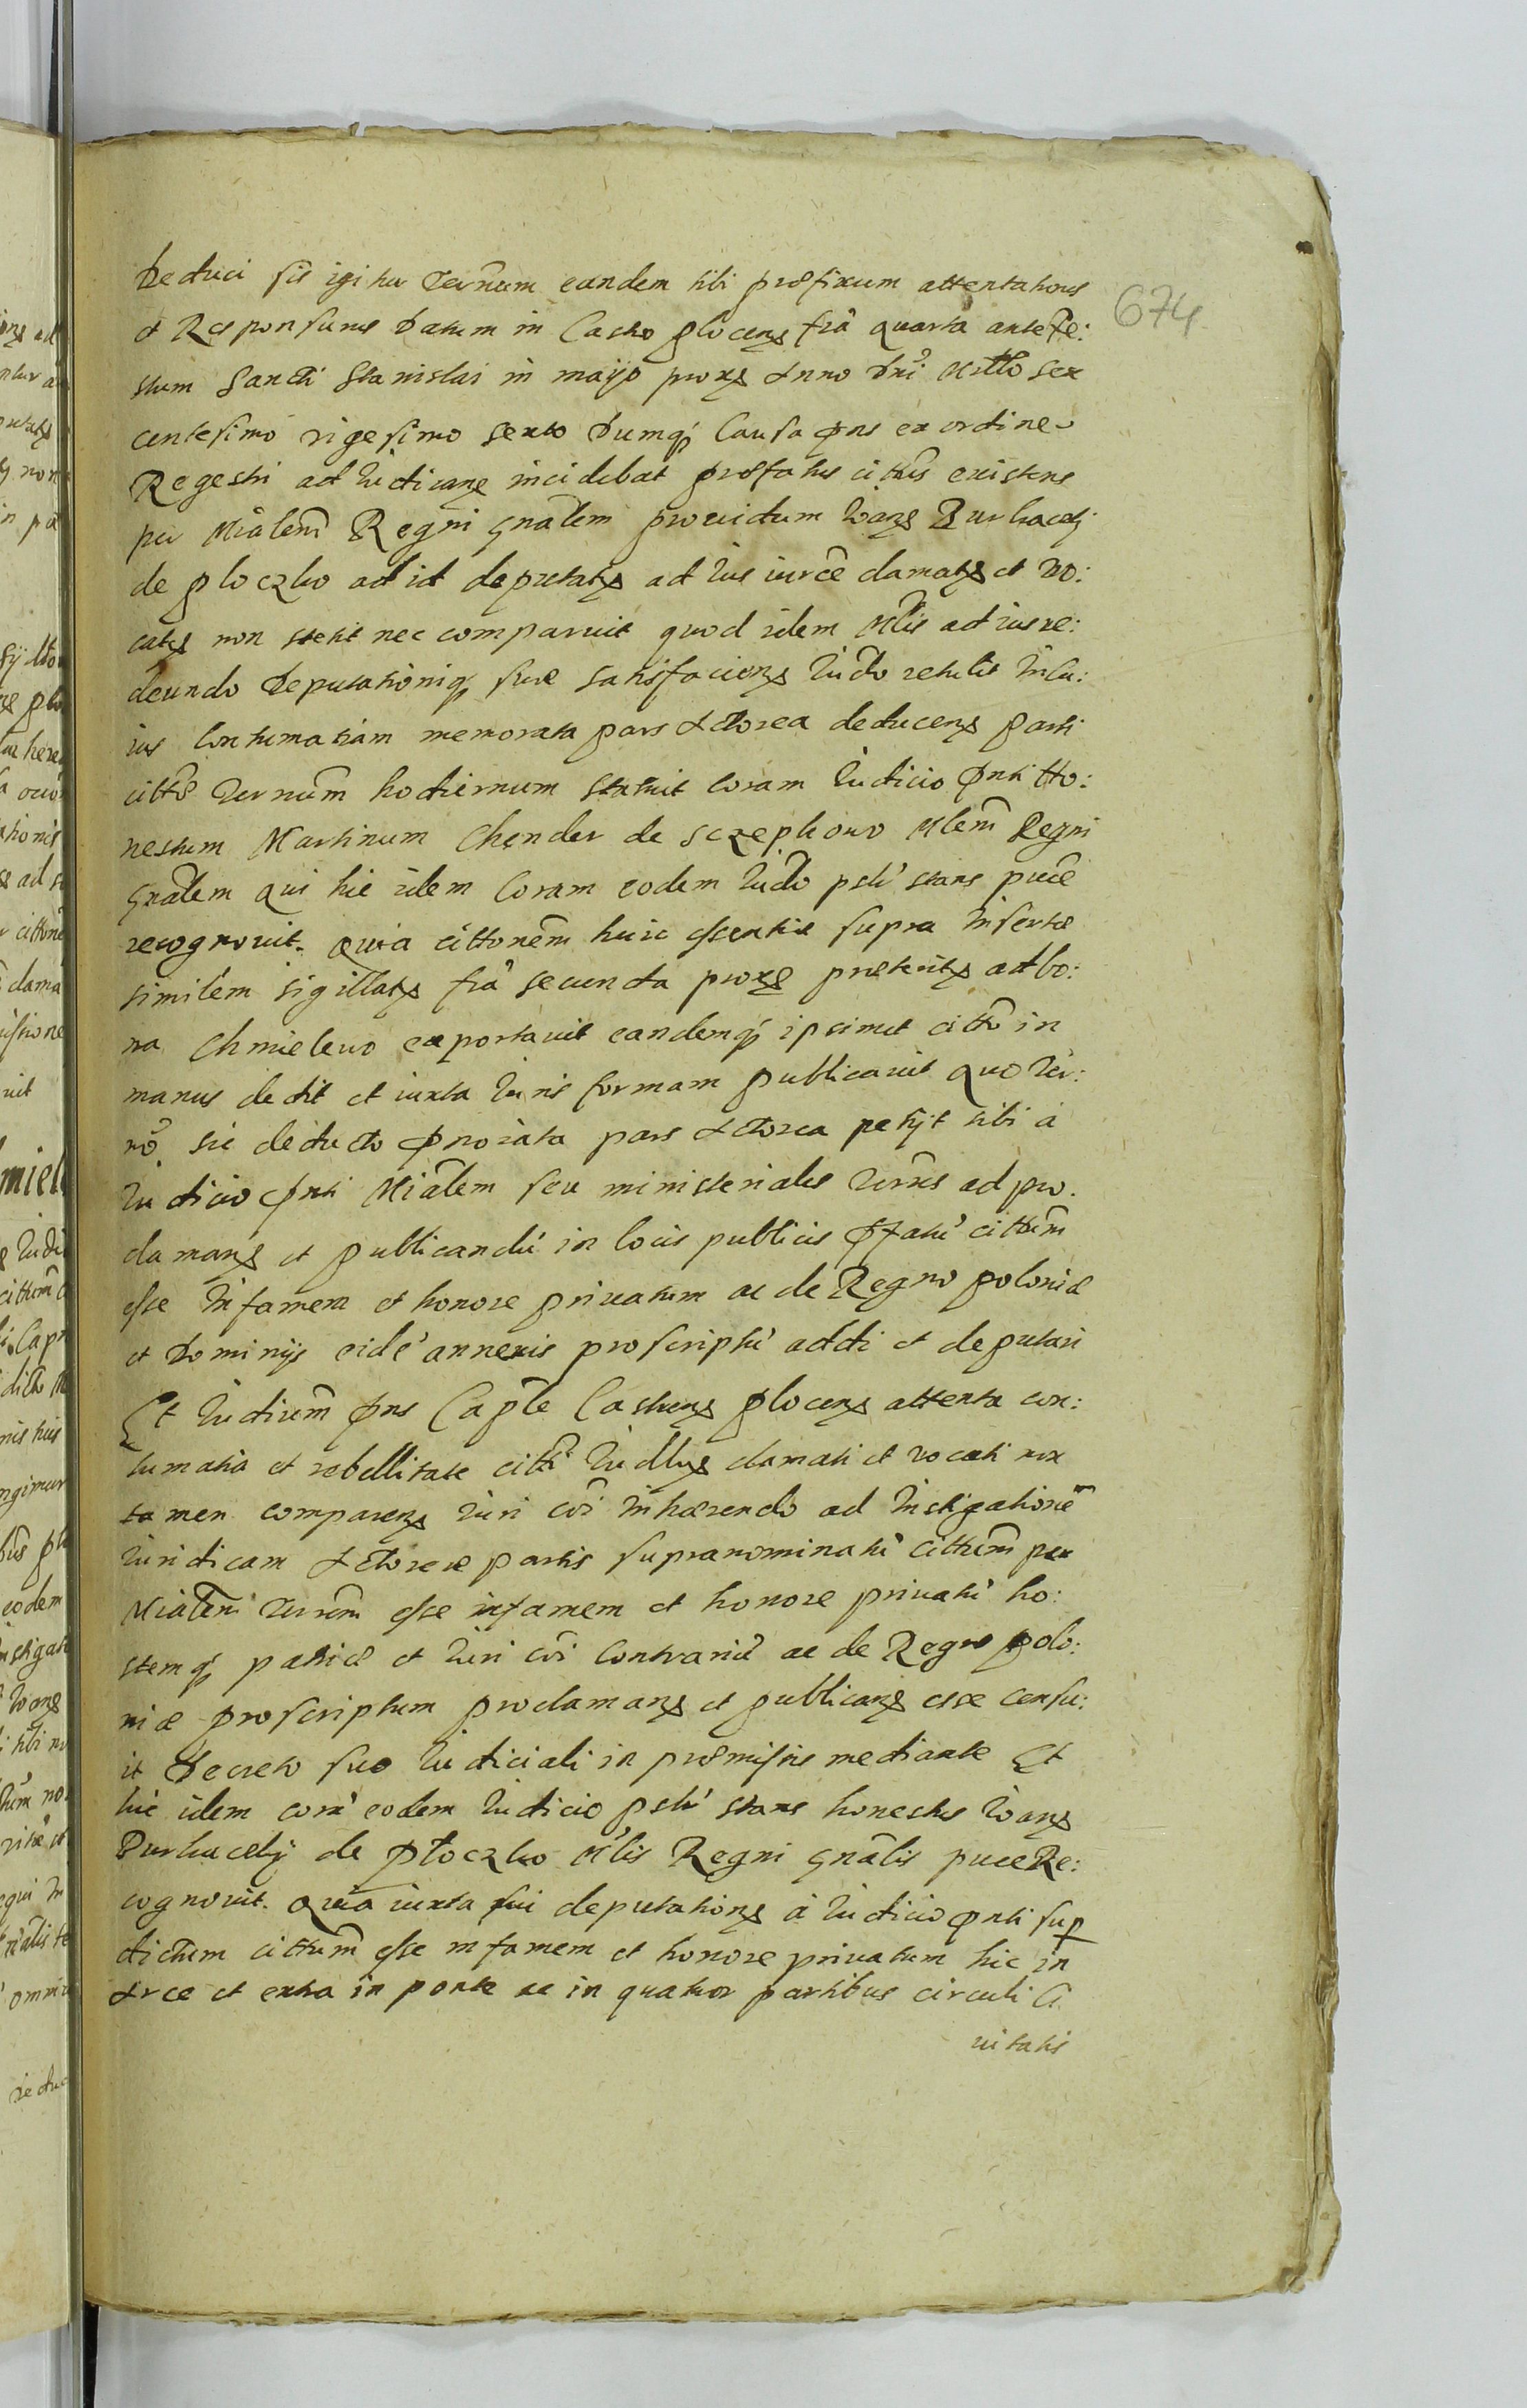 674
Deduci sis igitur Termnum eandem tibi præfixum attentaturus
et Responsurus Datum in Castro plocens fia quarta ante Fe:
stum Sancti Stanislai in mayo prox Anno Dni Millo sex
centesimo vigesimo sexto Dumq Causa pns ex ordine
Regestri ad Iudicand incidebat præfatus cittus existens
per Mialem Regni gnalem prouidum Ioans Burkacky
de ploczko ad id deputats ad Ius iurce clamats et vo:
cats non stetit nec comparuit quod idem Mlis ad ius re:
deundo Deputationiq suæ satisfaciens Iudo retulit In cu:
ius Contumatiam memorata pars Actorea deducens parti
cittæ Termnum hodiernum statuit Coram Iudicio pnti Ho:
nestum Martinum Chender de Sczepkowo Mlem Regni
Gnalem qui hic idem Coram eodem Iudo psl stans puce
recognouit. Quia cittonem huic essentiæ supra Insertæ
similem sigillats fia secunda prox præterits ad bo:
na Chmielewo exportauit eandemq ipsimet citto in
manus dedit et iuxta Iuris formam publicauit Quo Ter:
no sic deducto pnoiata pars Actorea petyt sibi a
Iudicio pnti Mialem seu ministeriales Terres ad pro.
clamans et publicandu in locis publicis pfatu cittum
esse Infamem et honore priuatum ac de Regno poloniæ
et Dominijs eide annexis proscriptu addi et deputari
Et Iudicium pns Caple Castrens plocens attenta con:
tumatia et rebellitate citti Iudlr clamati et vocati non
tamen comparens Iuri coi Inhærendo ad Instigatione
Iuridicam Actoreæ partis supranominatu cittum per
Mialem Terrem esse infamem et honore priuatu ho:
stemq patriæ et Iuri coi Contrariu ac de Regno polo:
niæ proscriptum proclamans et publicans esse censu:
it Decreto suo Iudiciali in præmissis mediante Et
hic idem cora eodem Iudicio psl stans honestus Ioans
Burkacky de płoczko Mlis Regni Gnalis puce Re:
cognouit. Quia iuxta sui deputations a Iudicio pnti sup
dictum cittum esse infamem et honore priuatum hic in
Arce et extra in ponte ac in quatuor partibus circuli Ci
uitatis